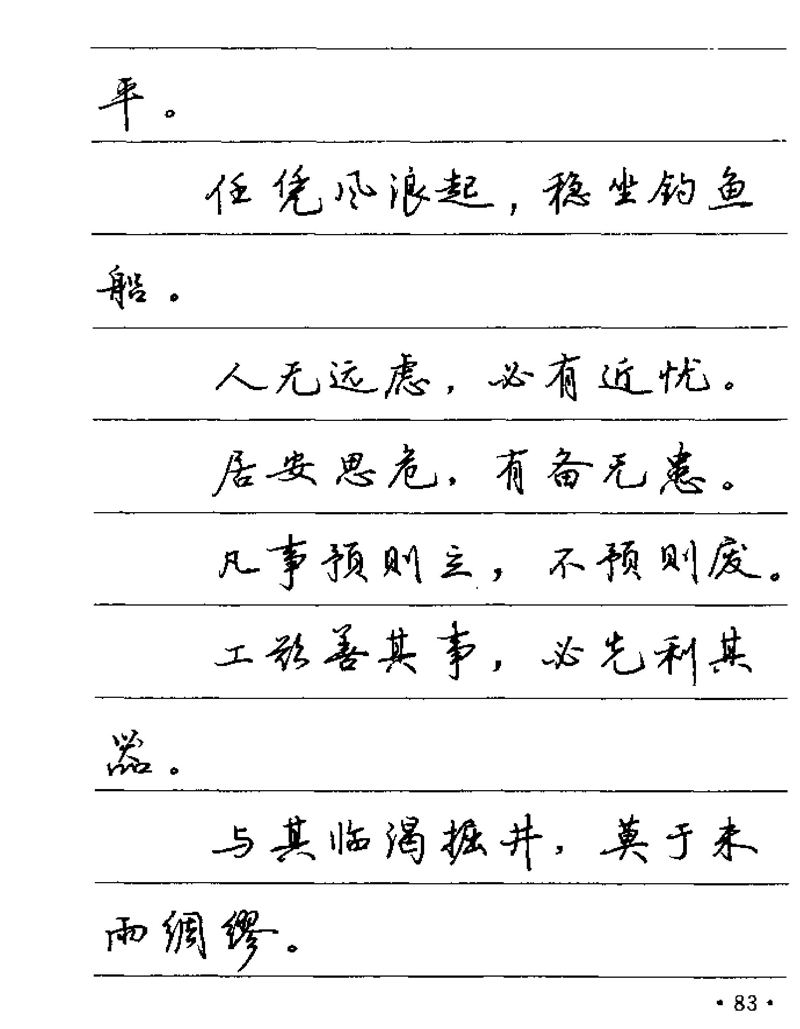 平。
任凭风浪起，稳坐钓鱼
船。
人无远虑，必有近忧。
居安思危，有备无患。
凡事预则立，不预则废。
工欲善其事，必先利其
器。
与其临渴掘井，莫于未
雨绸缪。
·83·